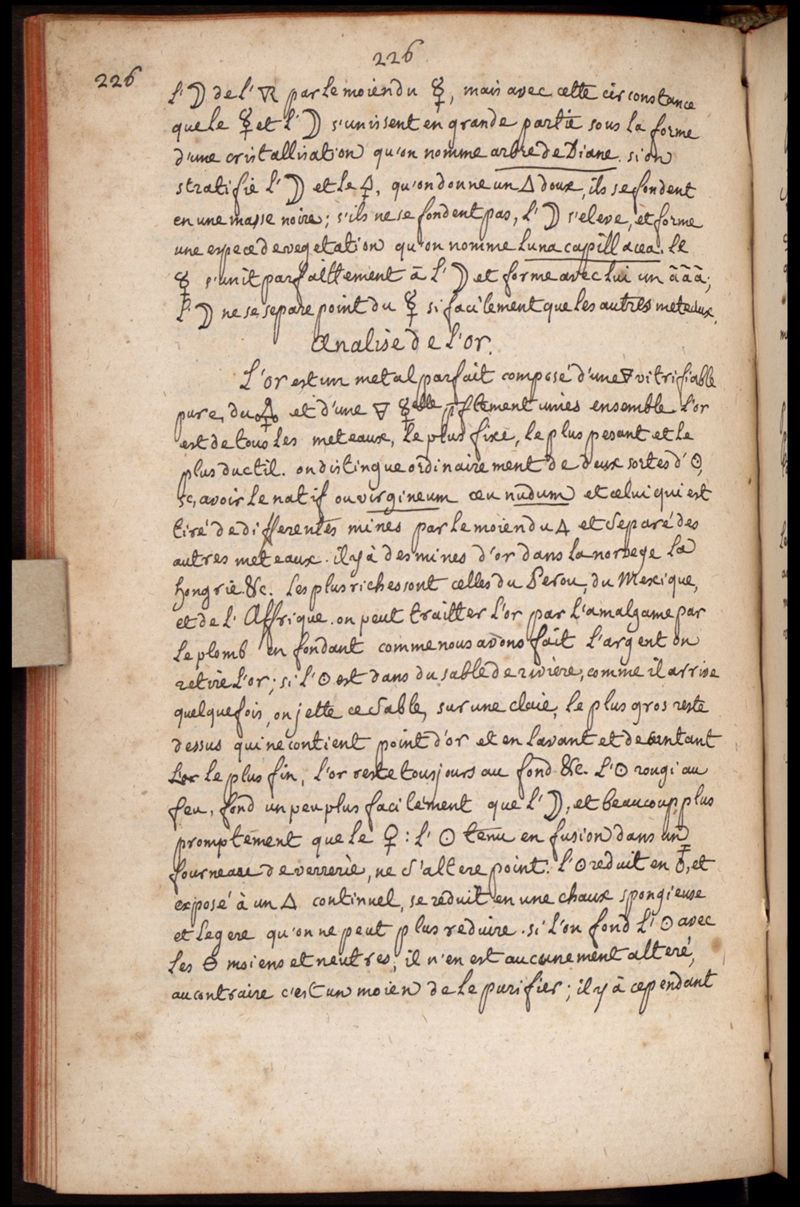 226
226
l'☽ de l'🜆 par le moien du ☿, mais avec cette circonstance
que le ☿ et l'☽ s'unissent en grande partie sous la forme
d'une cristallisation qu'on nomme arbre de Diane. si on
stratifie l'☽ et le 🜍, qu'on donne un △ doux, ils se fondent
en une masse noire; s'ils ne se fondent pas, l'☽ s'eleve, et forme
une espece de vegetation qu'on nomme luna capillacea. le
☿ s'unit parfaittement à l'☽ et forme avec lui un ããã;
l'☽ ne se separe point du ☿ si facilement que les autres meteaux.
Analise de l'or.
L'or est un metal parfait composé d'une ▽ vitrifiable
pure, du 🜍 et d'une ▽ ☿elle pftement unies ensemble l'or
est de tous les meteaux, le plus fixe, le plus pesant et le
plus ductil. on distingue ordinairement de deux sortes d'☉,
sc, avoir le natif ou virgineum ceu nudum et celui qui est
tiré de differentes mines par le moien du △ et separé des
autres meteaux. il y à des mines d'or dans la norvege la
hongrie &c. les plus riches sont celles du Perou, du Mexique,
et de l'Affrique. on peut traitter l'or par l'amalgame par
le plomb en fondant comme nous avons fait l'argent on
retire l'or; si l'☉ est dans du sable de riviere, comme il arrive
quelquefois, on jette ce sable, sur une claie, le plus gros reste
dessus qui ne contient point d'or et en lavant et decantant
le plus fin, l'or reste tousjours au fond &c. l'☉ rougi au
feu, fond un peu plus facilement que l'☽, et beaucoup plus
promptement que le ♀: l'☉ tenu en fusion dans un
fourneau de verrerie, ne s'altere point. l'☉ reduit en et
exposé à un △ continuel, se reduit en une chaux spongieuse
et legere qu'on ne peut plus reduire. si l'on fond l'☉ avec
les 🜔 moiens et neutres, il n'en est aucunement alteré,
au contraire c'est un moien de le purifier; il y à cependant